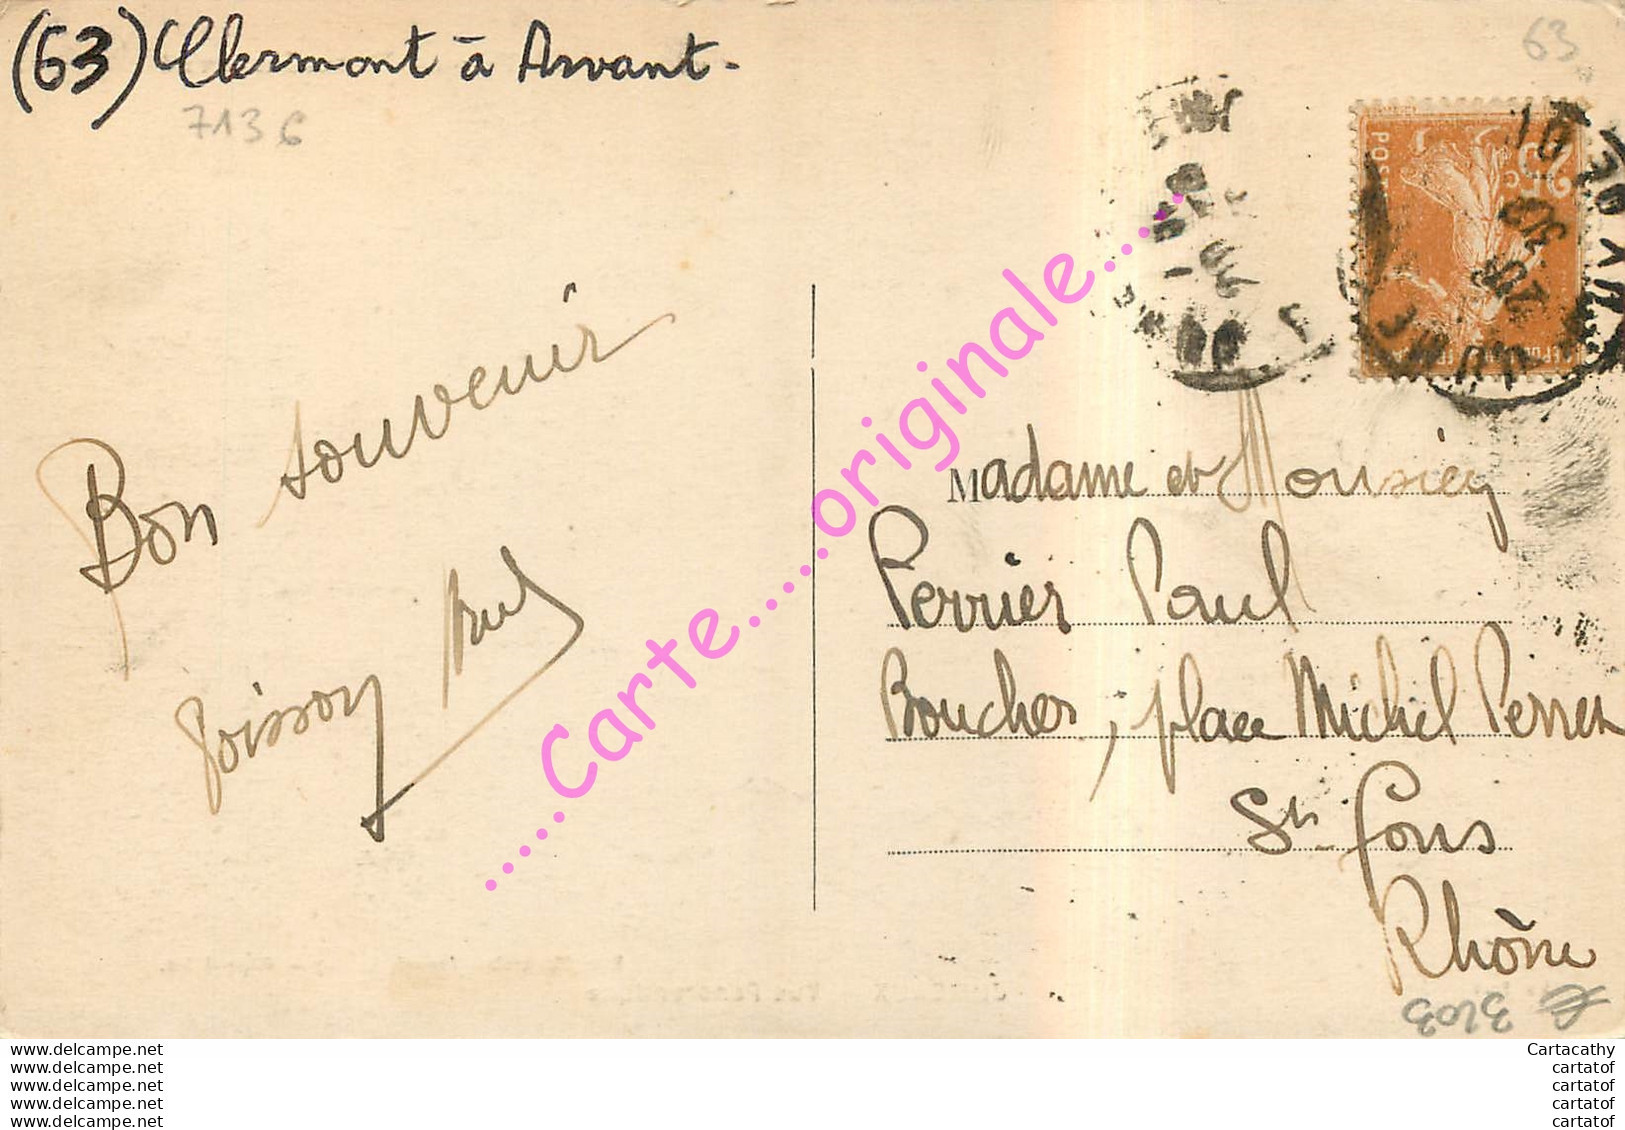 (63) Clermont à Arvant.
7136
63
Bon souvenir
Poisson Paul
Madame et Monsieur
Perrier Paul
Boucher, place Michel Perret
St. Fons
Rhône
3403
.....Carte.....originale.....
POSTES
25c
www.delcampe.net
www.delcampe.net
www.delcampe.net
www.delcampe.net
www.delcampe.net
Cartacathy
cartatof
cartatof
cartatof
cartatof